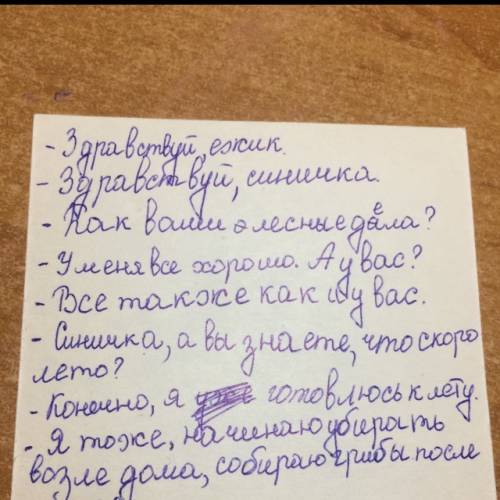 - Здравствуй, ежик.
- Здравствуй, синичка.
- Как ваши лесные дела?
- У меня все хорошо. А у вас?
- Все также как и у вас.
- Синичка, а вы знаете, что скоро
лето?
- Конечно, я готовлюсь к лету.
- Я тоже, начинаю убирать
возле дома, собираю грибы после